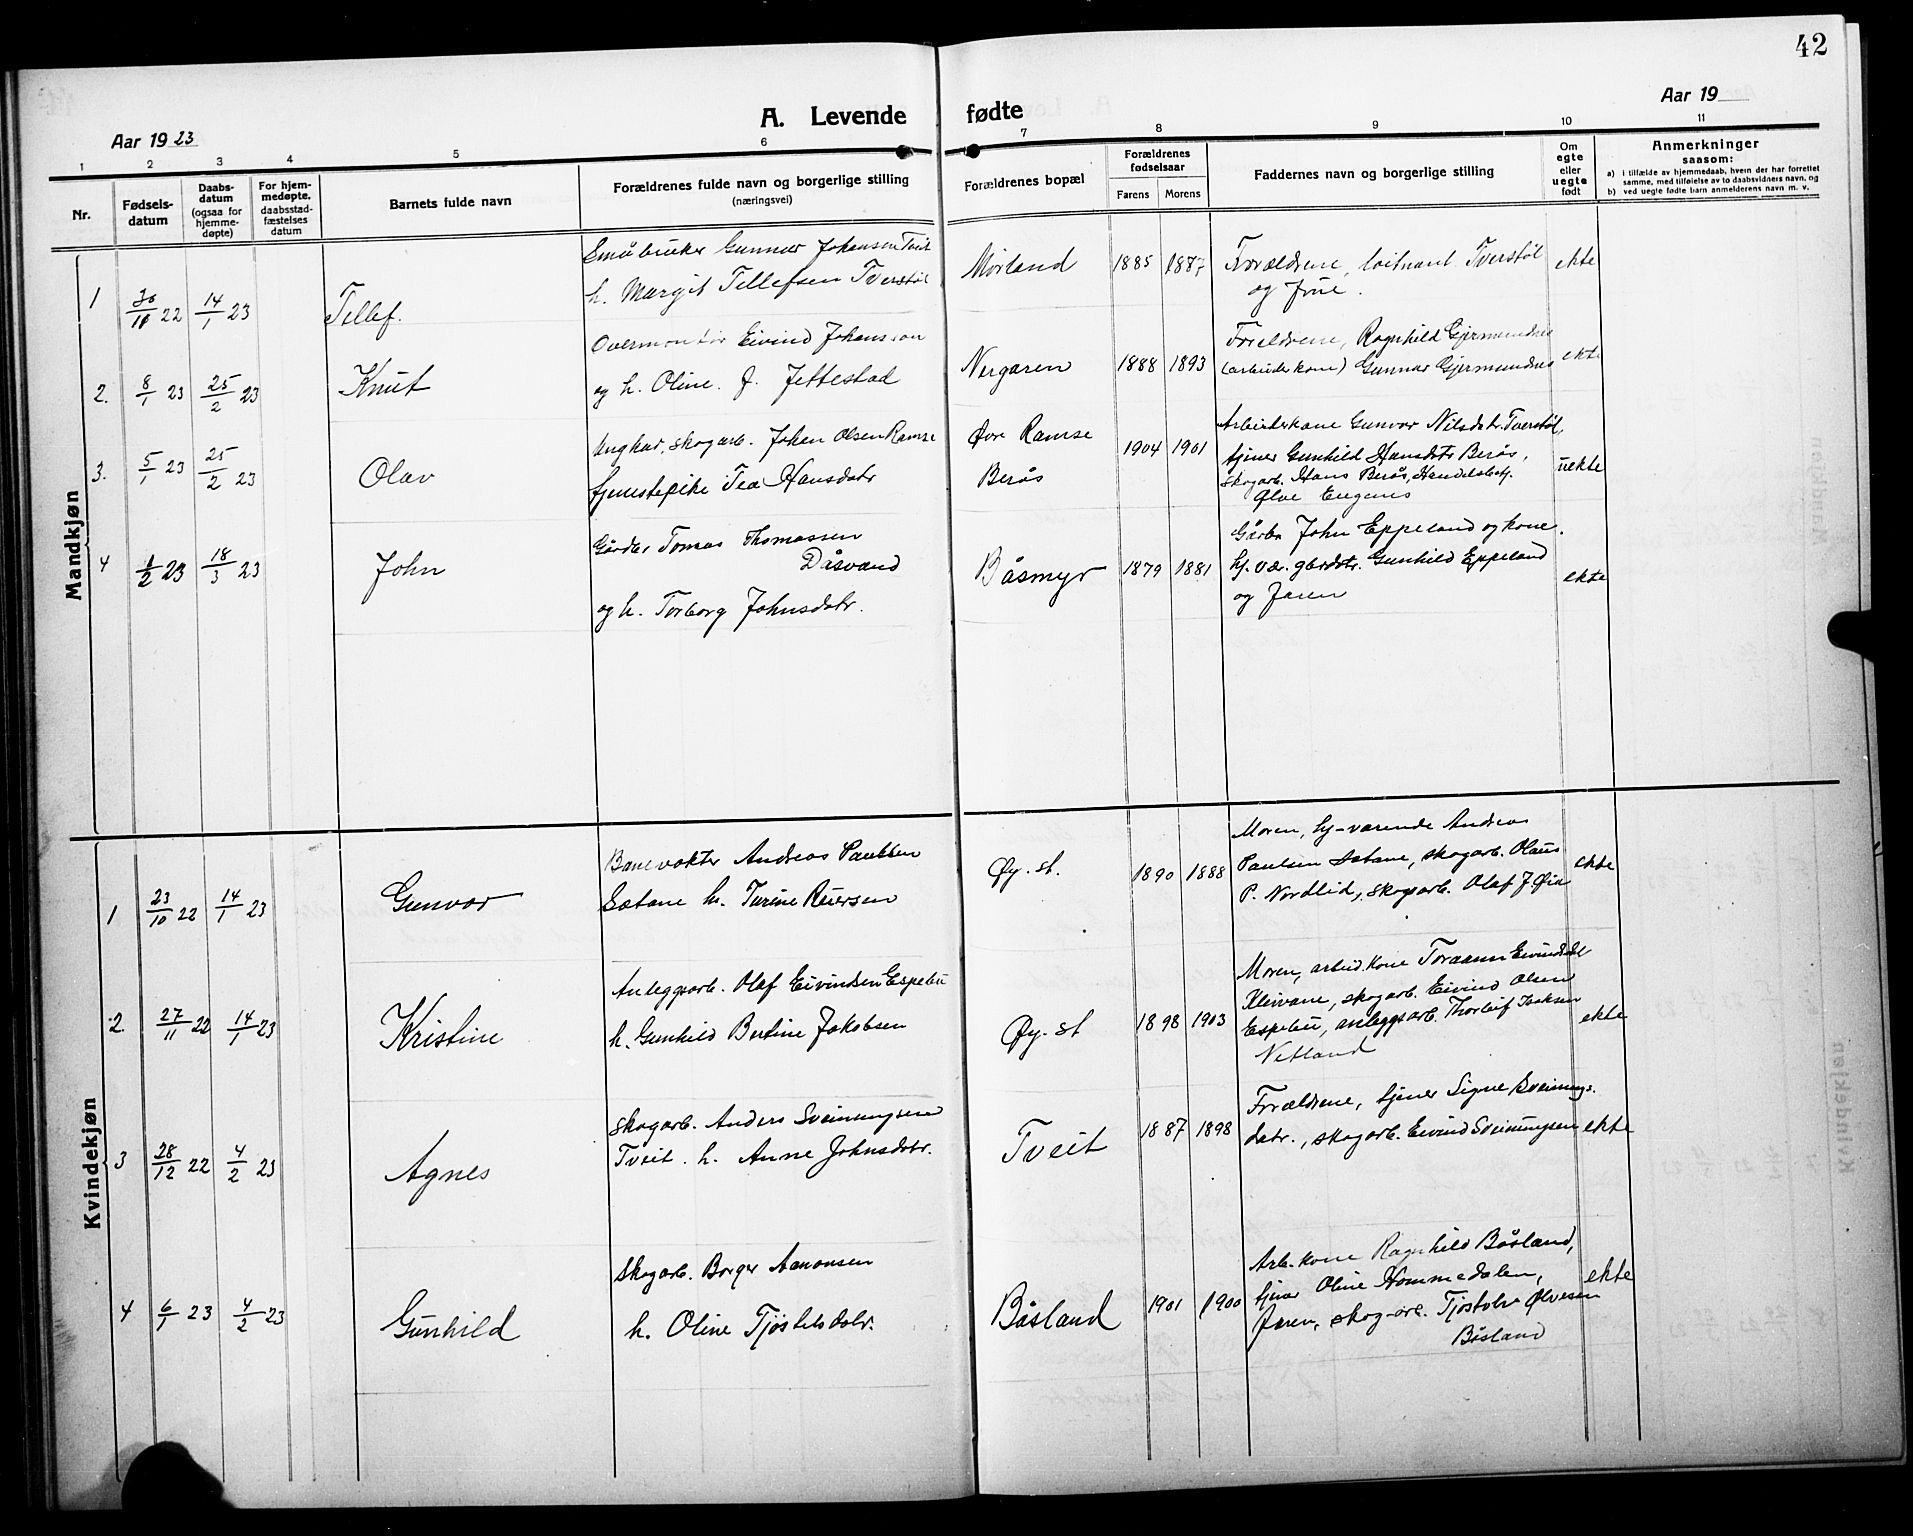 42
A. Levende fødte
Aar 1923
Aar 19
1 2 3 4 5 6 7 8 9 10 11
Nr.
Fødsels-
datum
Daabs-
datum
(ogsaa for
hjemme-
døpte)
For hjem-
medøpte,
daabsstad-
fæstelses
datum
Barnets fulde navn
Forældrenes fulde navn og borgerlige stilling
(næringsvei)
Forældrenes bopæl
Forældrenes
fødselsaar
Farens Morens
Faddernes navn og borgerlige stilling
Om
egte
eller
uegte
født
Anmerkninger
saasom:
a) i tilfælde av hjemmedaab, hvem der har forrettet
samme, med tilføielse av to daabsvidners navn, og
b) ved uegte fødte barn anmelderens navn m. v.
Mandkjøn
1 30/11 22 14/1 23 Tellef.
Småbruker Gunnar Johansen Tveit
h. Margit Tellefsen Tverstøl
Mørland 1885 1887
Forældrene, løitnant Tverstøl
og frue.
ekte
2. 8/1 23 25/2 23 Knut
Overmontør Eivind Johansson
og h. Oline. J. Jettestad
Nergaren 1888 1893
Forældrene, Ragnhild Gjermundnes
(arbeiderkone) Gunnar Gjermundnes
ekte
3. 5/1 23 25/2 23 Olav
Ungkar, skogarb. Johan Olsen Ramse
tjenestepike Tea Hansdatr
Øvre Ramse
Berås
1904 1901
Arbeiderkone Gunvor Nilsdtr. Tverstøl,
tjener Gunhild Hansdtr Berås,
skogarb. Hans Berås, Handelsbetj.
Ølve Eugenes
uekte
4 1/2 23 18/3 23 John
Gårdbr Tomas Thomassen
Dåsvand
og h. Torborg Johnsdatr.
Båsmyr 1879 1881
Gårbr John Eppeland og kone.
hj. vær. gårdstr. Gunhild Eppeland
og faren
ekte
Kvindekjøn
1 23/10 22 14/1 23 Gunvor
Banevokter Andreas Paulsen
Sætane h. Turine Reiersen
Øy. st. 1890 1888
Moren, hj-værende Andreas
Paulsen Sætane, skogarb. Olaus
P. Nordlid, skogsarb. Olaf J. Øia
ekte
2 27/11 22 14/1 23 Kristine
Anleggsarb. Olaf Eivindsen Espelin
h. Gunhild Bertine Jakobsen
Øy. st 1898 1903
Moren, arbeid. kone Toraann Eivindsdtr
Kleivane, skogarb. Eivind Olsen
Espelin, anleggsarb. Thorleif Isaksen
Netland
ekte
3 28/12 22 4/2 23 Agnes
Skogarb. Anders Sveinungsen
Tveit. h. Anne Johnsdotr.
Tveit 1887 1898
Forældrene, tjener Signe Sveinungs-
datr., skogarb. Eivind Sveinungsen
ekte
4 6/1 23 4/2 23 Gunhild
Skogarb. Borger Aanonsen
h. Oline Tjøstelsdatr.
Båsland 1901 1900
Arb.kone Ragnhild Båsland,
tjener Oline Hommedalen,
faren, skog-arb. Tjøstolv Ølvesen
Båsland
ekte